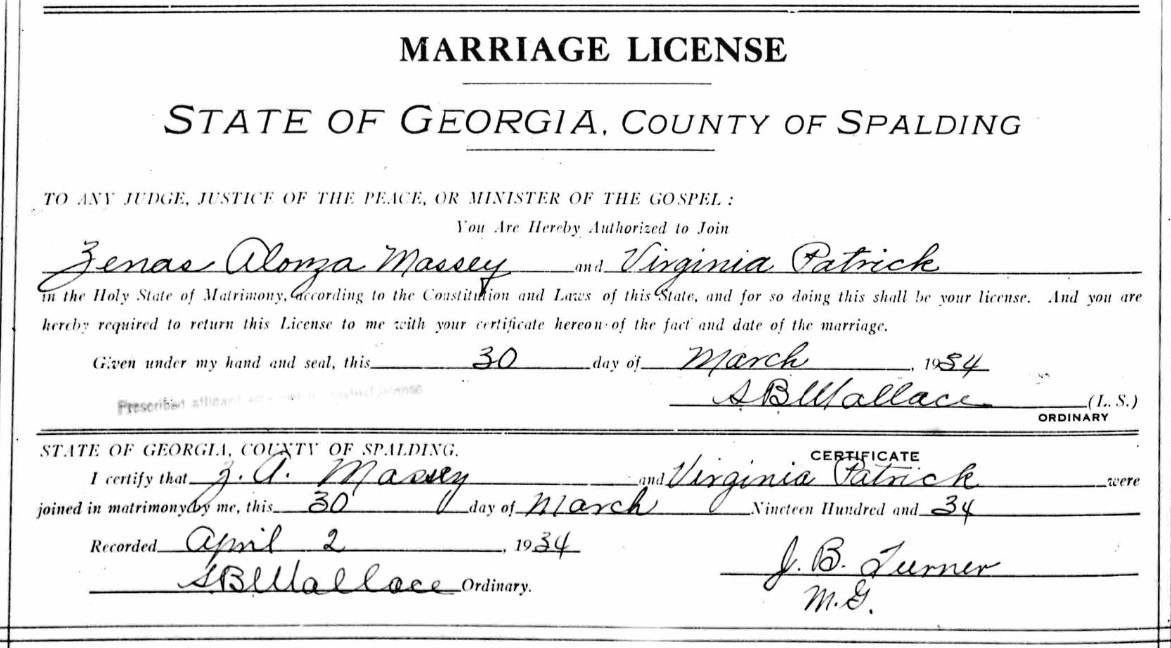 MARRIAGE LICENSE
STATE OF GEORGIA, COUNTY OF SPALDING
TO ANY JUDGE, JUSTICE OF THE PEACE, OR MINISTER OF THE GOSPEL:
You Are Hereby Authorized to Join
Zenas Alonza Massey and Virginia Patrick
in the Holy State of Matrimony, according to the Constitution and Laws of this State, and for so doing this shall be your license. And you are
hereby required to return this License to me with your certificate hereon of the fact and date of the marriage.
Given under my hand and seal, this 30 day of March, 1934
S B Wallace (L. S.)
ORDINARY
Prescribed
STATE OF GEORGIA, COUNTY OF SPALDING.
CERTIFICATE
I certify that Z. A. Massey and Virginia Patrick were
joined in matrimony by me, this 30 day of March Nineteen Hundred and 34
Recorded April 2, 1934
J. B. Turner
S B Wallace Ordinary.
M. G.